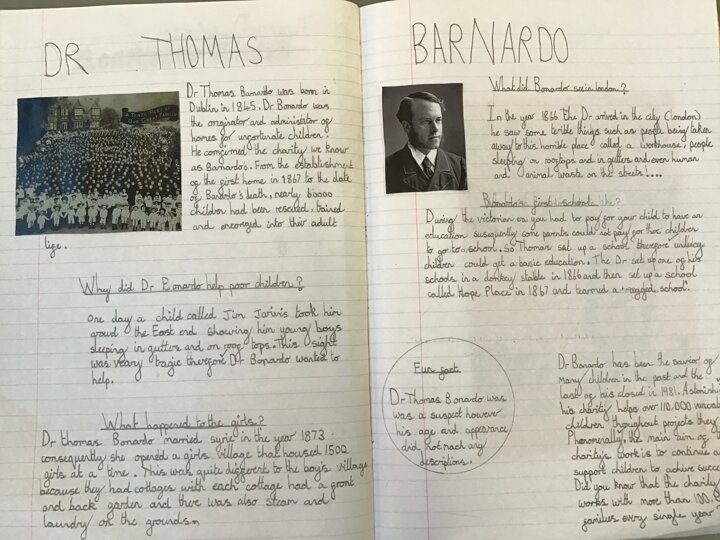 DR THOMAS BARNARDO
Dr Thomas Barnardo was born in
Dublin in 1845. Dr Bonardo was
the originator and administator of
homes for unportunate children.
He comgirmed the charity we know
as Barnardo's. From the establishment
of the first home in 1867 to the date
of Banardo's death, nearly 60000
children had been rescued, trained
and encoraged into their adult
lige.
Why did Dr Bonardo help poor children?
One day a child called Jim Jarvis took him
groud the East end showing him young boys
sleeping in gutters and on roof tops. This sight
was veary tragic therefore Dr Bonardo wanted to
help.
What happened to the girls?
Dr thomas Bonardo married syrie in the year 1873
consequently she opened a girls village that housed 1500
girls at a time. This was quite different to the boys village
because they had cottages with each cottage had a front
and back garden and there was also steam and
laundry on the grounds.
What did Bonardo see in london?
In the year 1866 The Dr arrived in the city (london)
he saw some terible things such as people being taken
away to this horrible place called a workhouse, people
sleeping on rooftops and in gutters and even human
and animal waste on the streets!....
Bonardo's first school
During the victorian era you had to pay for your child to have an
education susequently some parents could not pay for thier children
to go to school. So Thomas set up a school therefore unlucky
children could get a basic education. The Dr set up one of his
schools in a donkey stable in 1866 and then set up a school
called Hope Place in 1867 and tearmed a 'ragged school'.
Fun fact
Dr Thomas Bonardo was
was a suspect however
his age and appearance
did not mach any
descriptions.
Dr Bonardo has been the savior of
many children in the past and the
last of his closed in 1981. Astonish
his charity helps over 110,000
children throughout projects they
Phenomenally, the main aim of
charity's work is to continue a
support children to achieve succe
Did you know that the charity
works with more than 100,
families every single year